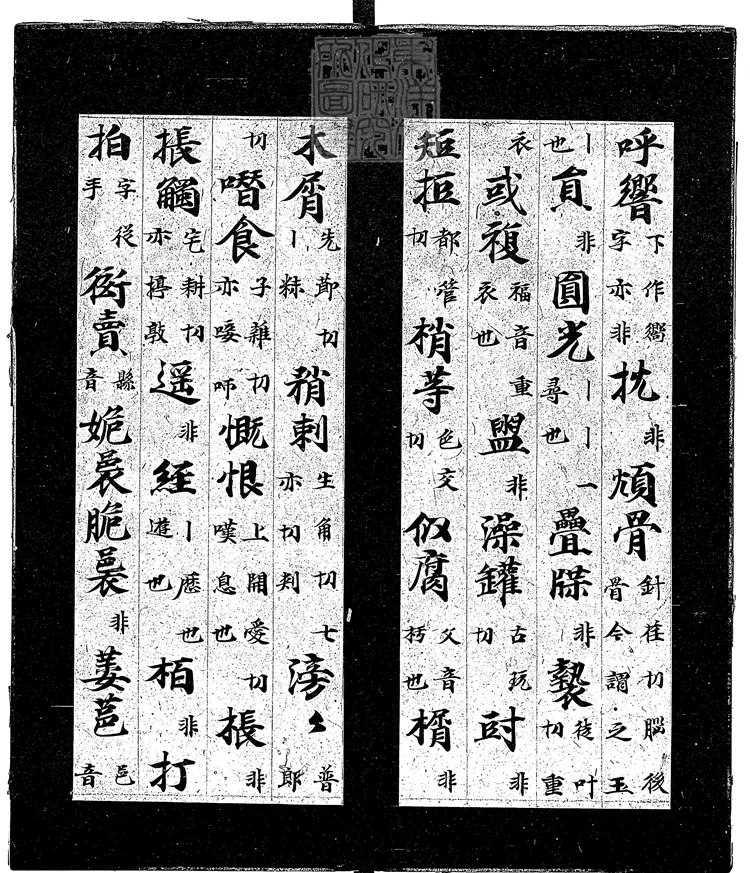 呼響下作嚮字亦非抌非骨針荏切腦後骨今謂之玉
丨也貟非圓光丨丨一尋也疊非褺徒叶切重
衣或複福音重衣也盥非澡罐古玩切非
短拒都管切梢䓁色交切似腐父音朽也楈非
木屑先節切丨粖矟刺生角切七亦切判滂〻普郎
切噆食子雜切亦唼㕸慨恨上開愛切嘆息也棖非
掁觸宅耕切亦揨敦遥非經丨歷也遊也栢非打
拍字從手衒賣縣音脆非萎邑音